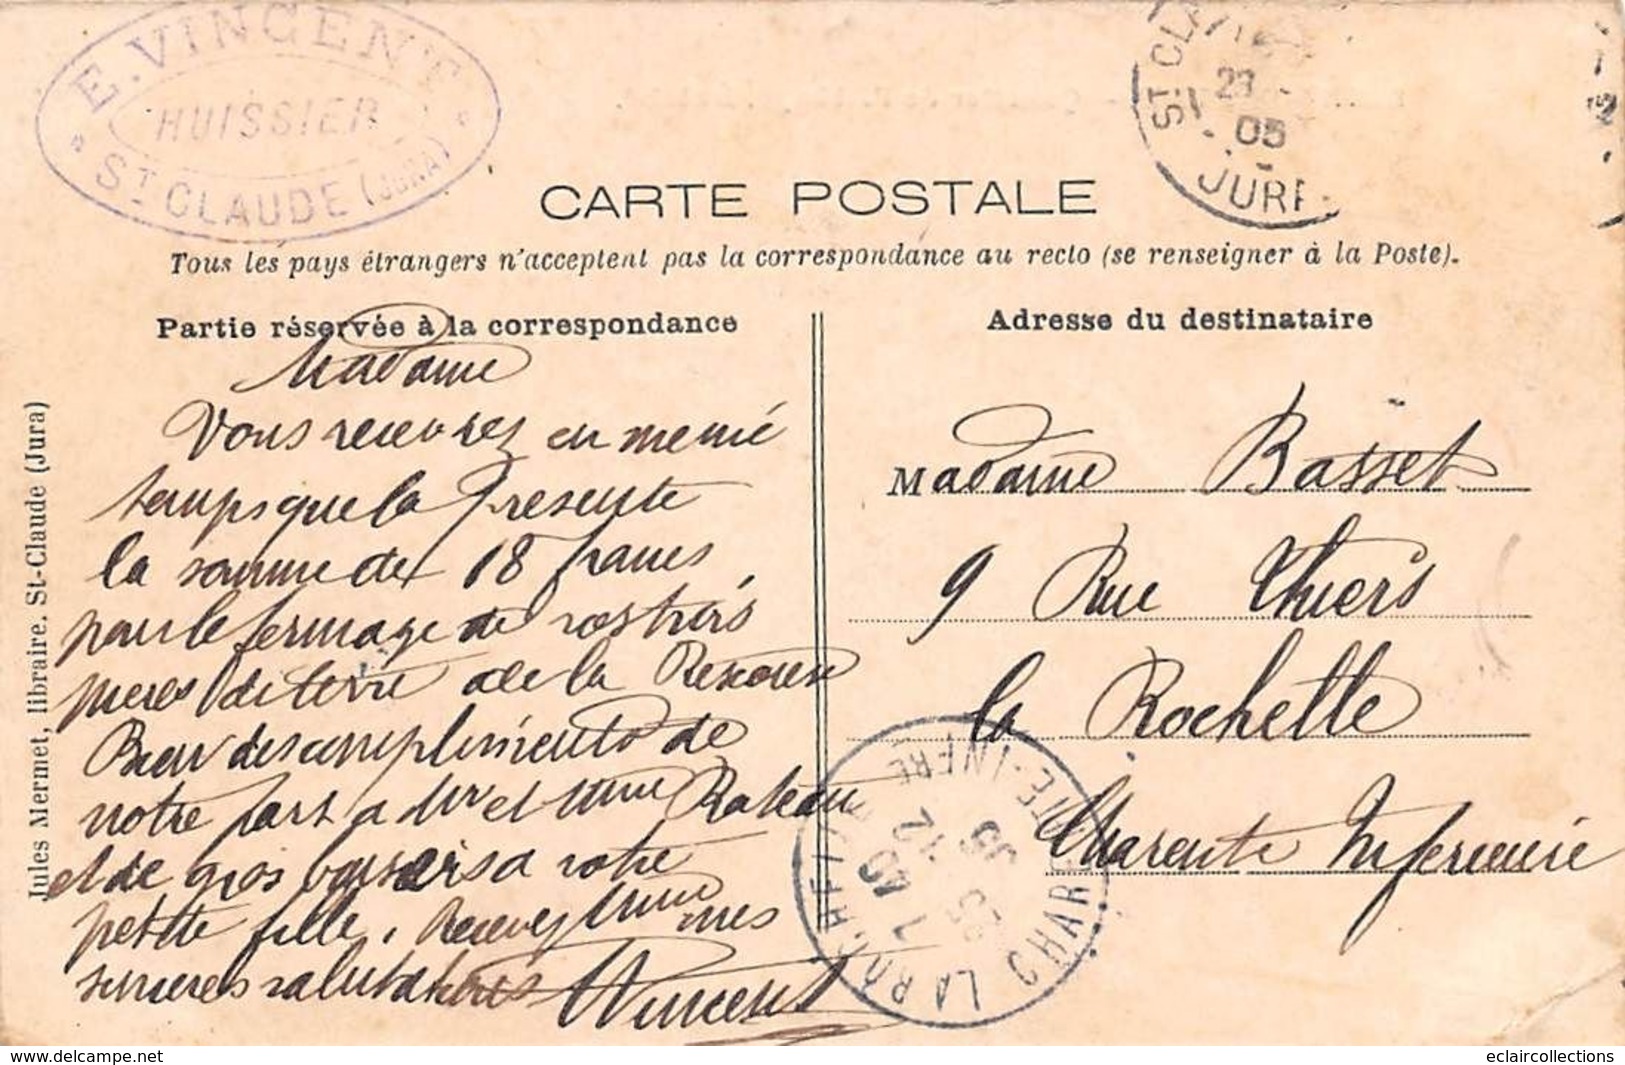 E. VINCENT
HUISSIER
ST CLAUDE (JURA)
ST CLA
29
05
JURA
CARTE POSTALE
Tous les pays étrangers n'acceptent pas la correspondance au recto (se renseigner à la Poste).
Partie réservée à la correspondance
Madame
Vous recevrez en meme
temps que la presente
la somme de 18 francs,
pour le fermage de vos trois
pieces de terre de la
Bien des compliments de
notre part a Mr et Mme Rateau
et de gros baisers a votre
petite fille, Recevez Mme mes
sinceres salutations
Vincent
Adresse du destinataire
Madame Basset
9 Rue Thiers
la Rochelle
Charente Inferieure
LA ROCHELLE
CHARTE-INFRE
7 40
Jules Mermet, libraire. St-Claude (Jura)
www.delcampe.net
eclaircollections